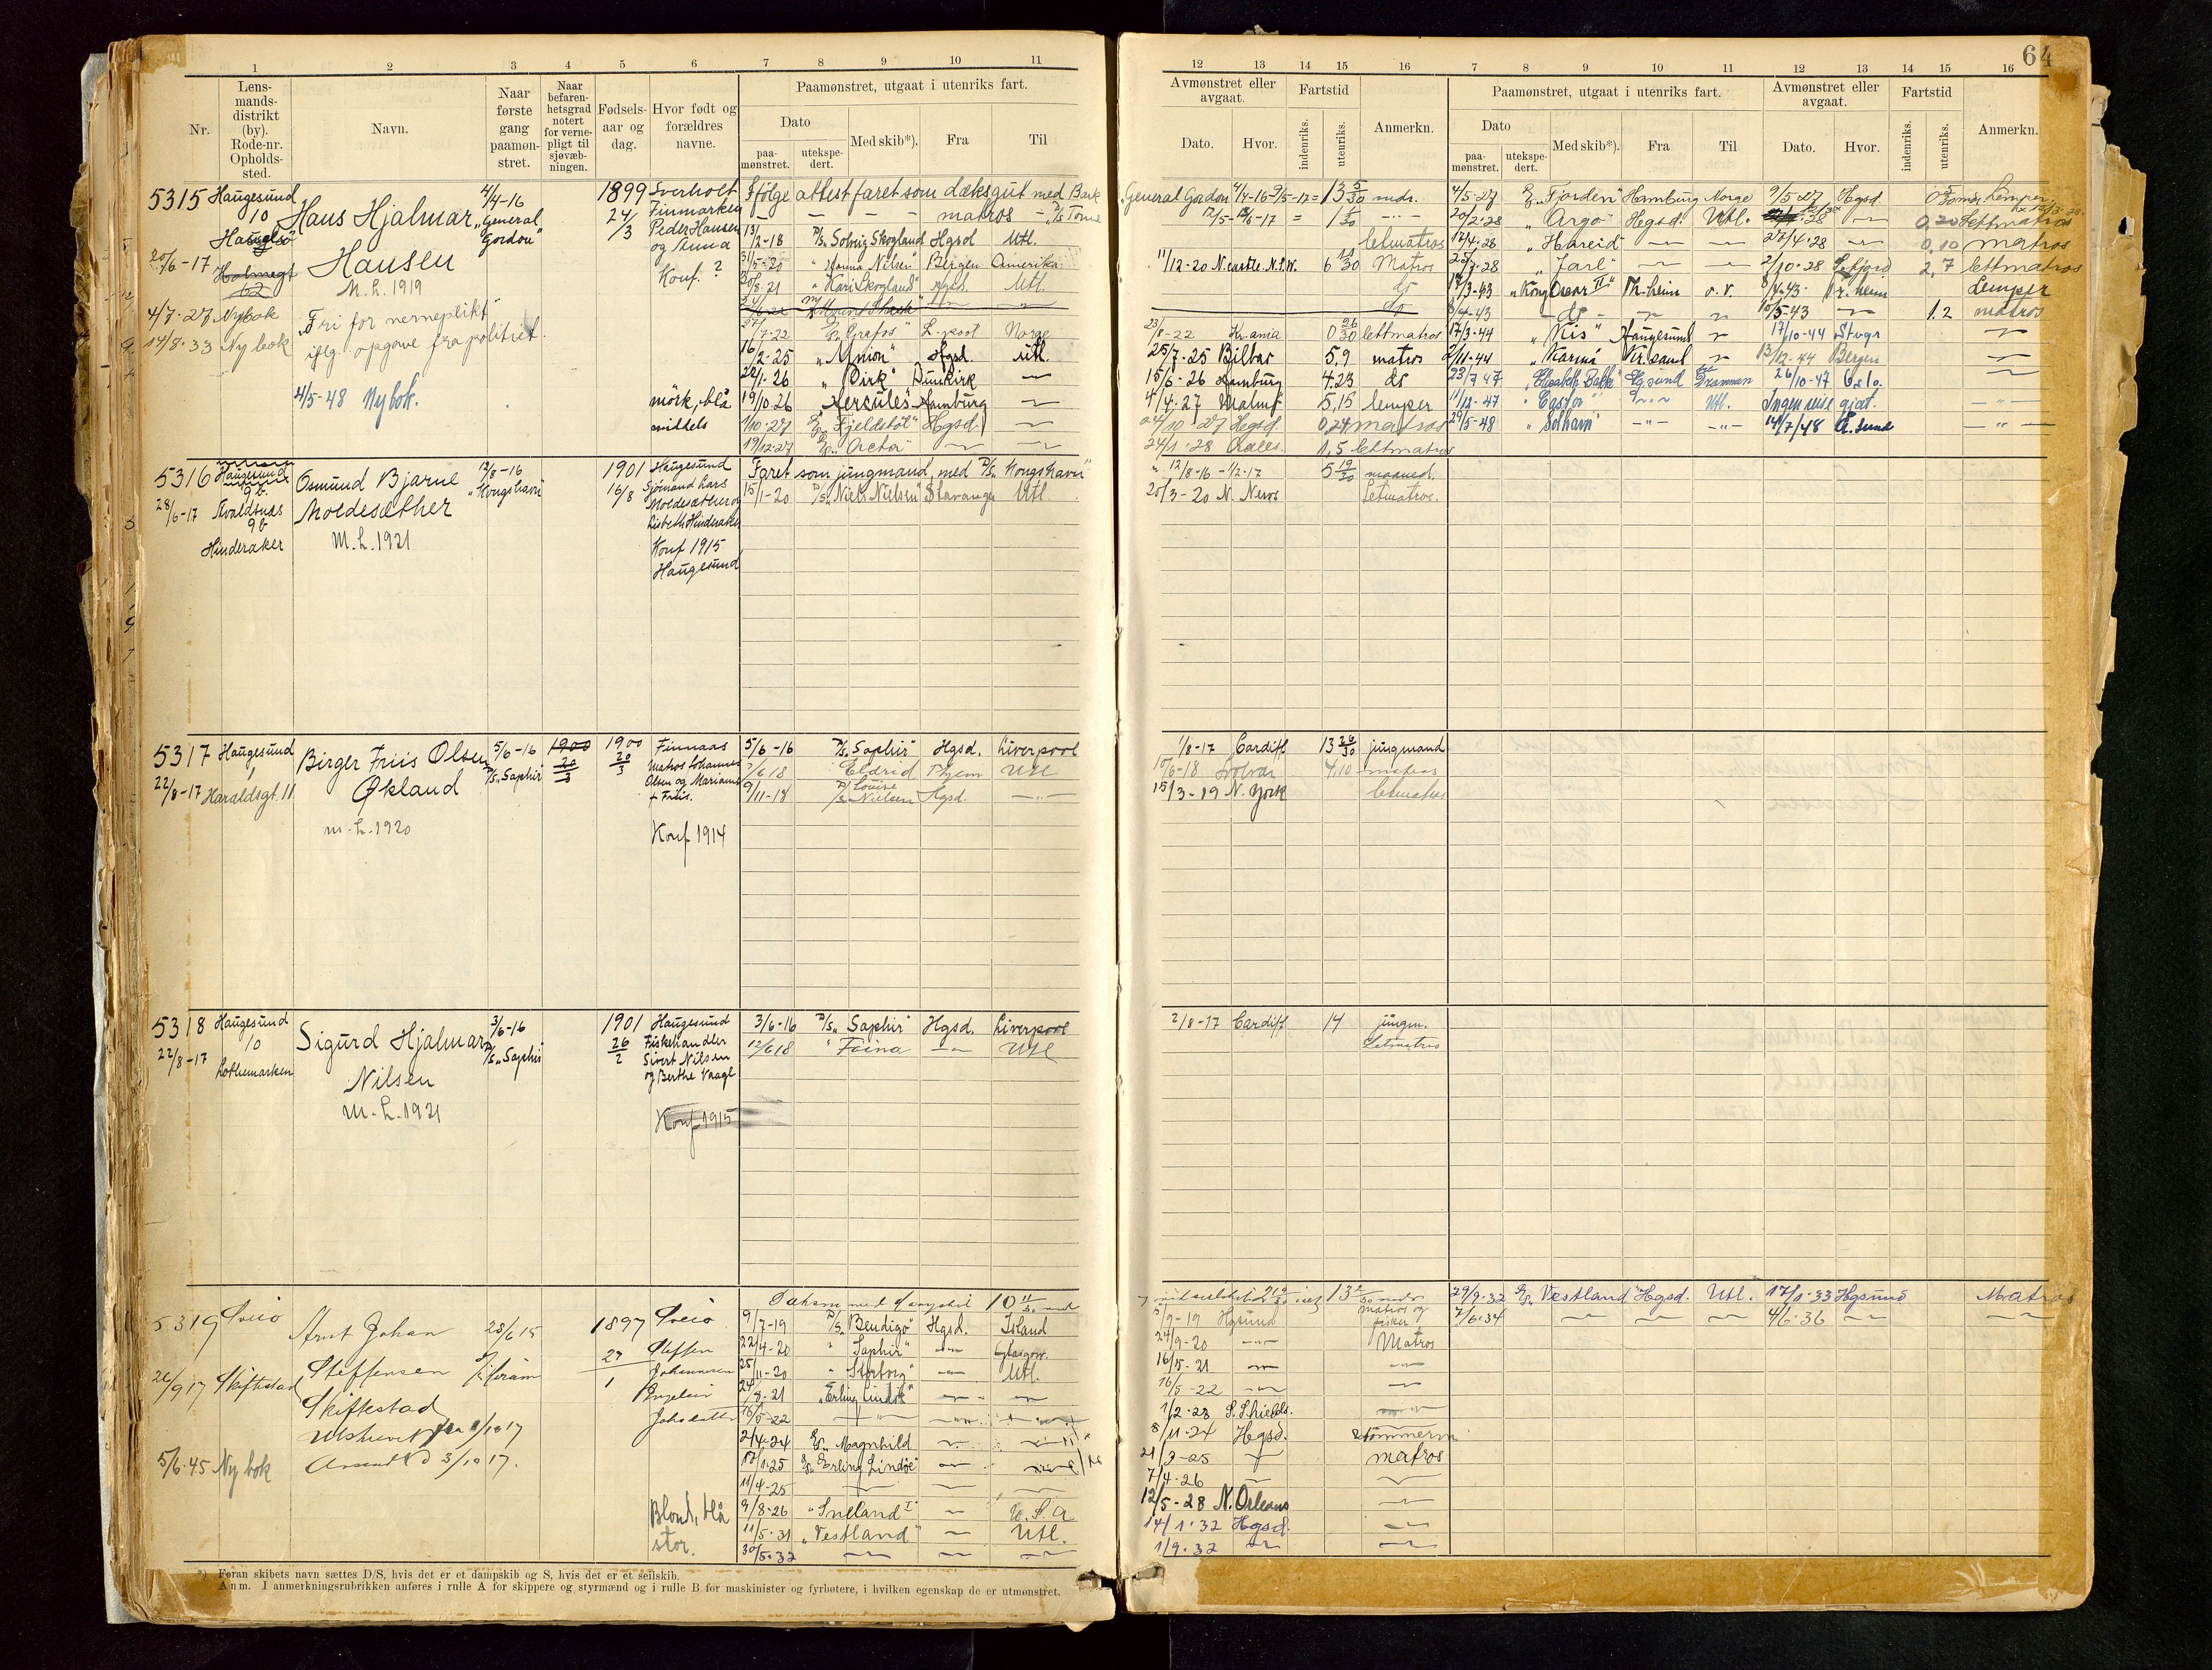 64
1 2 3 4 5 6 7 8 9 10 11
Nr.
Lens-
mands-
distrikt
(by).
Rode-nr.
Opholds-
sted.
Navn.
Naar
første
gang
paamøn-
stret.
Naar
befaren-
hetsgrad
notert
for verne-
pligt til
sjøvæb-
ningen.
Fødsels-
aar og
dag.
Hvor født og
forældres
navne.
Paamønstret, utgaat i utenriks fart.
Dato
paa-
mønstret.
utekspe-
dert.
Med skib*).
Fra
Til
12 13 14 15 16 7 8 9 10 11 12 13 14 15 16
Avmønstret eller
avgaat.
Dato.
Hvor.
Fartstid
indenriks.
utenriks.
Anmerkn.
Paamønstret, utgaat i utenriks fart.
Dato
paa-
mønstret.
utekspe-
dert.
Med skib*).
Fra
Til
Avmønstret eller
avgaat.
Dato.
Hvor.
Fartstid
indenriks.
utenriks.
Anmerkn.
5315 Haugesund
10
20/6-17
4/7-27 Nybok
14/8.33 Ny bok
Hans Hjalmar
Hansen
M.L. 1919
"Fri for verneplikt"
iflg. opgave fra politiet.
4/5-48 Ny bok.
4/4-16
"General
Gordon"
1899
24/3
Sverholt
Finmarken
Peder Hansen
og Anna
Konf. ?
mörk, blå
middels
Ifølge attest faret som dæksgut med Bark General Gordon 4/4-16-9/5-17 = 13 5/30 mdr.
matros
13/2-18 D/S „Solveig Skogland Hgsd Utl. letmatros
31/5-20 " Hanna Nilsen" Bergen Amerika 11/12-20 N.castle. N.S.W. 6 11/30 Matros
20/8-21 " Kari Skogland" Hgsd. Utl. do
27/7-22 "Grefos" L.pool Norge 23/8-22 Kr.ania 0 26/30 lettmatros
16/2-25 Hgsd. Utl. 25/7-25 Bilbao 5,9 matros
22/1-26 „Dirk" Dunkirk 15/6-26 Hamburg 4.23 do
19/10.26 „Hercules" Hamburg 4/4-27 Malmø 5,15 lemper
1/10-27 "Fjeldstøl" Hgsd. 24/10-27 Hegsd. 0,24 matros
19/12-27 "Acta" 24/1-28 1,5 lettmatros
4/5-27 "Fjorden" Hamburg Norge 9/5-27 Hgsd. 0 5/30 mdr. Lemper
20/2-28 "Argo" Hegsd. Utl. 0,20 lettmatros
17/4-28 „Hareid" 27/4-28 0,10 matros
25/7-28 „Jarl" 2/10-28 2,7 lettmatros
17/3-43 „Kong Oscar II" Th.heim o.r. 8/4-43 Tr.heim Lemper
8/4-43 - do - 10/5-43 1.2 matros
17/3-44 "Kis" Haugesund 17/10-44 Stvgr
2/11-44 "Karmø" Kr.sand 13/12-44 Bergen
23/7 47 "Elisabeth Bakke" Egsund Drammen 26/10-47 Oslo.
11/12-47 "Castor" Utl. Ingen reise gjort.
29/5-48 "Solhavn" 14/7/48 A.sund
5316 Haugesund
9 b.
28/6-17 Kvaldsnas
9b
Hinderaker
Osmund Bjarne
Moldesæther
M.L. 1921
12/8-16
"Kongshavn"
1901
16/8
Haugesund
Sjømand Lars
Moldesæther og
Lisbeth Hinderaker
Konf 1915
Haugesund
Faret som jungmand med D/S „Kongshavn" 12/8-16 - 1/2-17 5 19/30 maaned.
15/1-20 D/S „Niels Nielsen" Stavanger Utl. 20/3-20 N. News Letmatros.
5317 Haugesund
1
22/8-17 Haraldsgt. 11
Birger Friis Olsen
Økland
m.L. 1920
5/6-16
D/S „Saphir"
1900
20/3
1900
20/3
Finnaas
Matros Johannes
Olsen og Mariane
f. Friis.
Konf 1914
5/6-16 D/S „Saphir" Hgsd. Liverpool 1/8-17 Cardiff 13 26/30 jungmand
Eldrid Utl 10/6-18 4,10 matros
9/11-18 D/S Louise Nielsen Hgsd. 15/3-19 N. York letmatros
5318 Haugesund
10
22/8-17 Lothemarken
Sigurd Hjalmar
Nilsen
M.L. 1921
3/6-16
D/S „Saphir"
1901
26/2
Haugesund
Fiskehandler
Sivert Nilsen
og Berthe Vaage
Konf 1915
3/6-16 D/S „Saphir" Hgsd. Liverpool 2/8-17 Cardiff 14 jungm.
12/6 18 " Foina Utl Letmatros
5319 Sveio
26/9 17 Skiftestad
5/6-45 Ny bok
Arnt Johan
Steffensen
Skiftestad
Utskrevet fra 1/10 17
3/10 17.
28/6 15
1897
29/1
Sveio
Steffen
Johannesen
Ingeleiv
Johsdatter
Blond, blå
stor.
9/7-19 D/S „Bendigo" Hgsd. Island 5/9-19 Hgsund matros og fisker
22/4-20 " Saphir" Glasgow. 24/9-20 Matros
25/11-20 " Stortvig" Utl. 16/5-21
24/8-21 „Erling Lindøe" 16/5-22
16/5-22 1/2-23 S. Shields.
2/4-24 „Magnhild 8/11-24 Hgsd. Stømmerm
17/1-25 „Erling Lindøe" 21/3-25 matros
11/4-25 7/4-26
9/8-26 "Sneland I" U.S.A 12/5-28 N. Orleans
11/5-31 „Vestland" Utl. 14/1-32 Hgsd.
30/5-32 1/9-32
29/9.32 Vestland Hgsd. Utl. 17/1-33 Hgsund Matros
7/6.34 4/6.36
*) Foran skibets navn sættes D/S, hvis det er et dampskib og S, hvis det er et seilskib.
Anm. I anmerkningsrubrikken anføres i rulle A for skippere og styrmænd og i rulle B for maskinister og fyrbøtere, i hvilken egenskap de er utmønstret.